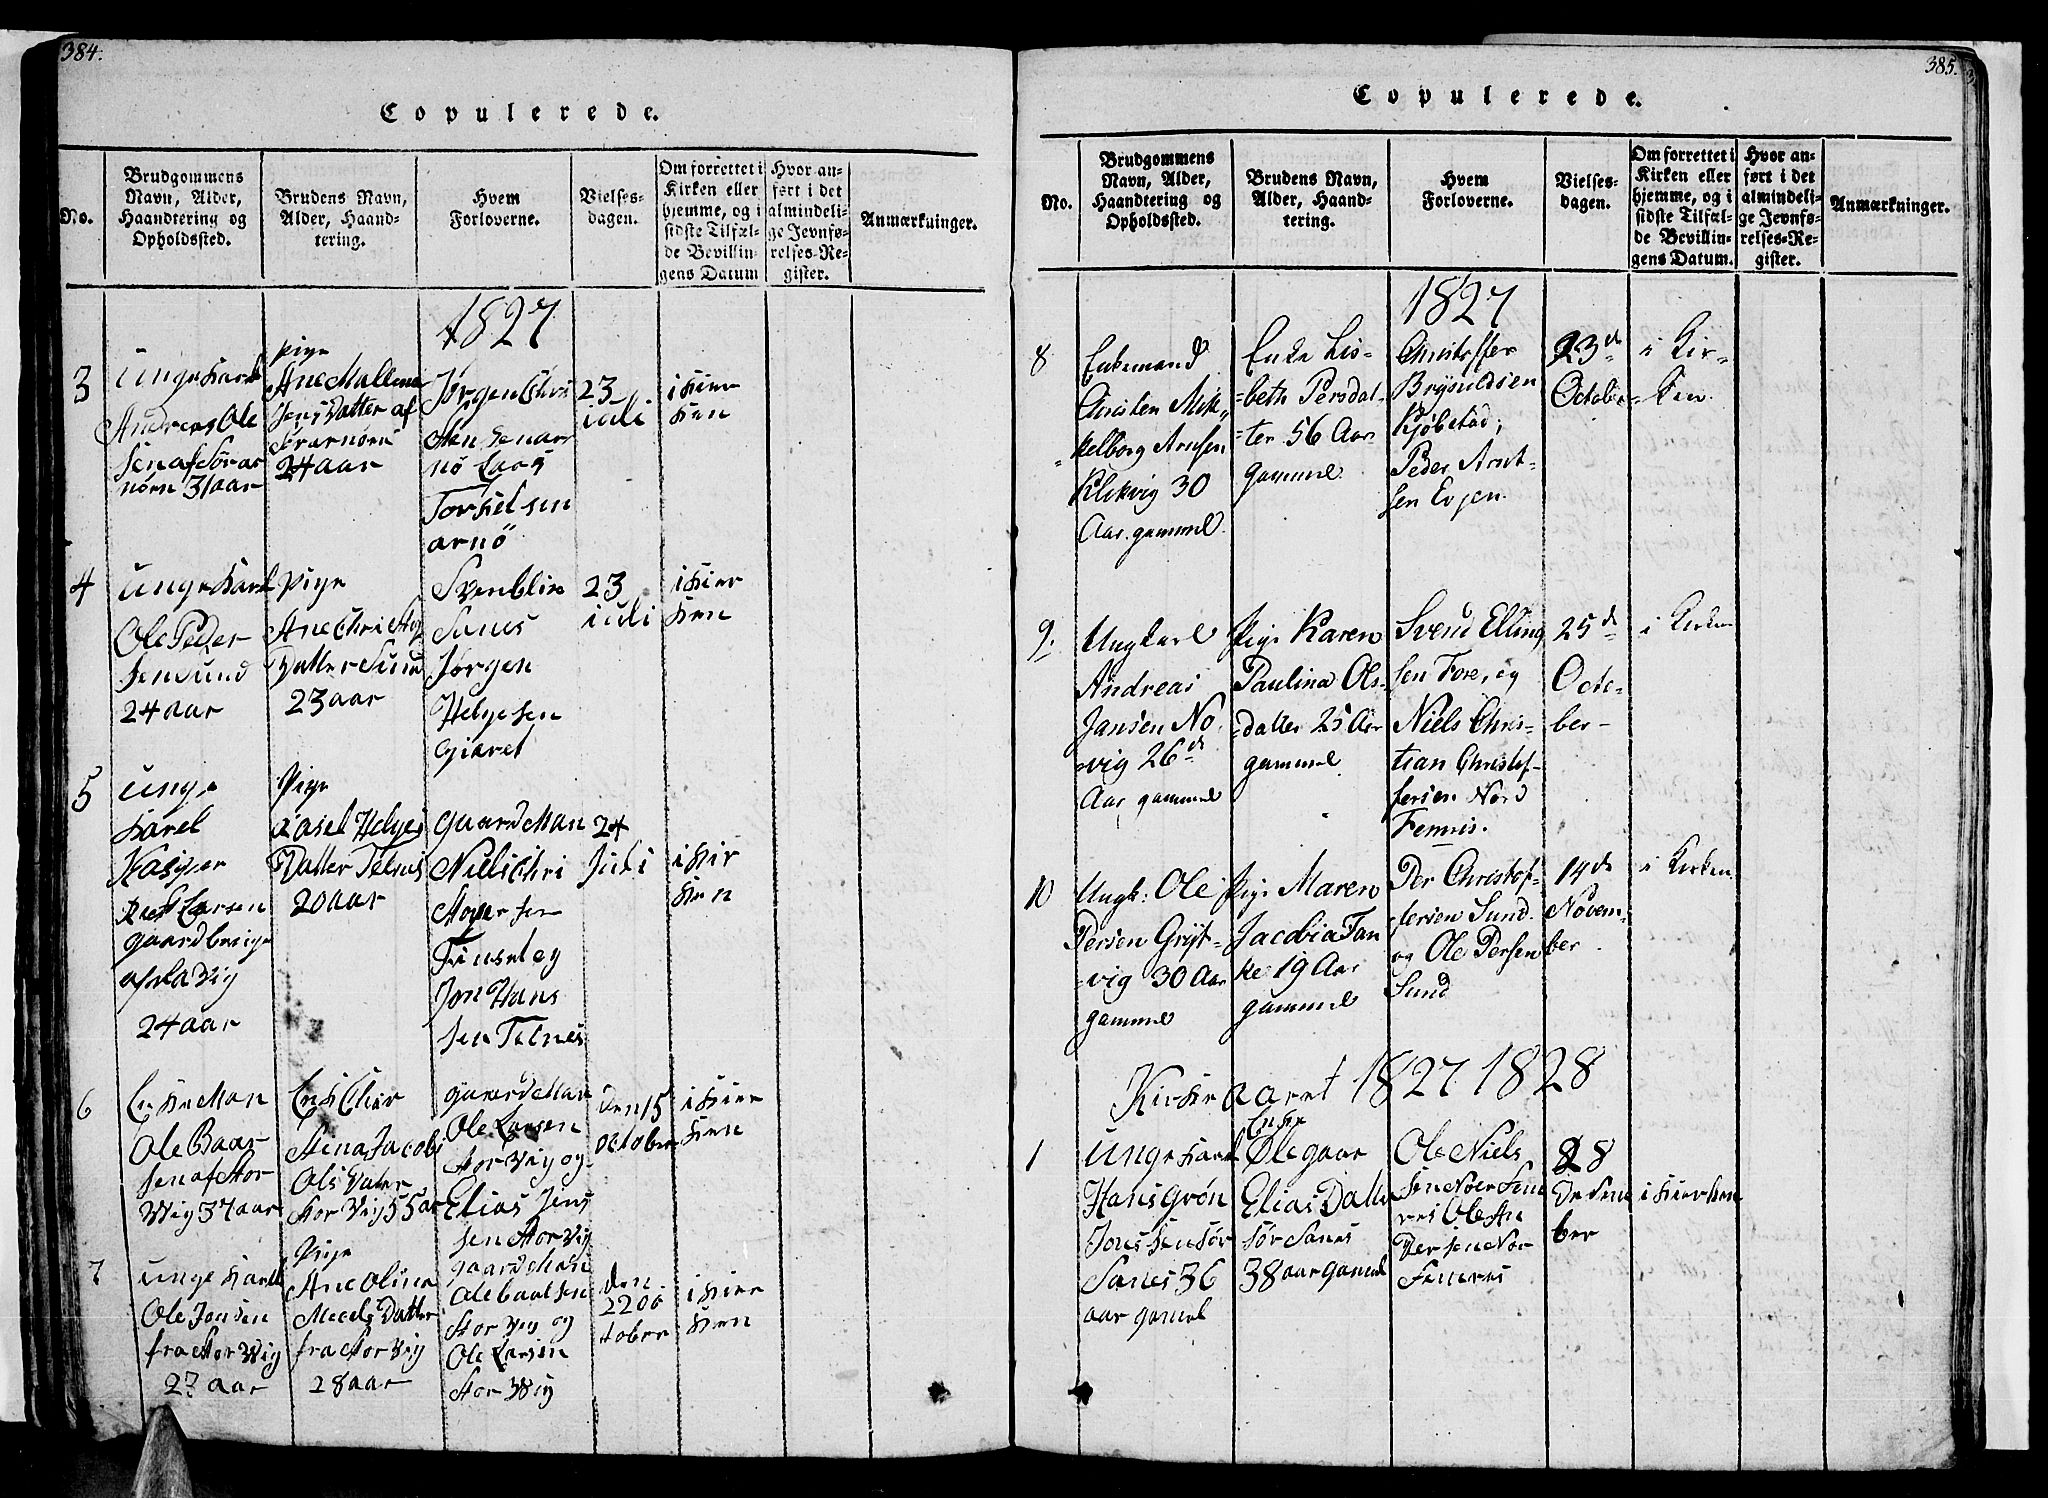 384.
Copulerede.
No.
Brudgommens
Navn, Alder,
Haandtering og
Opholdssted.
Brudens Navn,
Alder, Haand-
tering.
Hvem
Forloverne.
Vielses-
dagen.
Om forrettet i
Kirken eller
hjemme, og i
sidste Tilfæl-
de Bevillin-
gens Datum
Hvor an-
ført i det
almindeli-
ge Jevnfø-
relses-Re-
gister.
Anmærkninger.
1827
3
unge karl
Andreas Ole
sen af Sørar
nøen 31 aar
pige
Ane Mallena
Jens Datter af
Sørarnøen
24 aar
Jørgen Chri
sten sen ar
nø Lars
Torkelsen
arnø
23
iuli
i kier
ken
4
unge karl
Ole Peder
sen Sund
24 aar
pige
Ane Christ
Datter Sund
23 aar
Svenbliv
Sanes
Jørgen
Helgesen
giaret
23
iuli
i kier
ken
5
unge
karel
Kasper
Larsen
af
24 aar
Pige
Helges
Datter Telnes
20 aar
gaardMan
Niels Chri
Jon Hans
sen Telnes
24
Juli
i kir
ken
6
EnkeMan
Ole Baar
sen af Stor
Wig 37 aar
Stina Jacobi
Ols Dater
Stor Vig 55 aar
gaardMan
Ole Larsen
Stor Vig og
Elias Jens
sen Stor Vig
den 15
october
i kier
ken
7
unge karll
Ole Jensen
fra Stor Wig
27 aar
Pige
Ane Olina
Datter
fra Stor Vig
28 aar
gaardMan
Ole baalsen
Stor Vig og
Ole Larsen
Stor Wig
den
22 oc
tober
i kier
ken
385.
Copulerede.
No.
Brudgommens
Navn, Alder,
Haandtering og
Opholdssted.
Brudens Navn,
Alder, Haand-
tering.
Hvem
Forloverne.
Vielses-
dagen.
Om forrettet i
Kirken eller
hjemme, og i
sidste Tilfæl-
de Bevillin-
gens Datum.
Hvor an-
ført i det
almindeli-
ge Jevnfø-
relses-Re-
gister.
Anmærkninger.
1827
8
Enkemand
Christen Mik-
kelborg Arntsen
Klekvig 30
Aar gammel.
Enke Lis-
beth Persdat-
ter 56 Aar
gammel.
Christoffer
Brynildsen
Kjøbstad,
Peder Arnt-
sen Evjen.
23de
October
i Kir-
ken.
9.
Ungkarl
Andreas
Jansen No
vig 26
Aar gammel
Pige Karen
Paulina Ols-
datter 25 Aar
gammel
Svend Elling
sen Fore, og
Niels Chris-
tian Christof-
fersen Nord
Femris.
25de
Octo-
ber-
i Kirken
10
Ungk: Ole
Persen Grøt-
vig 30 Aar
gammel
Pige Maren
Jacobia Fan
ke 19 Aar
gammel
Per Christof-
fersen Sund.
og Ole Persen
Sund
14de
Novem-
ber.
i Kirken
Kirke aaret 1827 1828
1
unge karl
Hans Grøn
Jons sen Sør
Sanes 36
aar gamel
Enke
Olegaar
Elias Datter
sør Sanes
38 aar gamel
Ole Niels
sen Noer Fem
res Ole An
dersen Nor
Femres
28
De sem
ber
i kierken